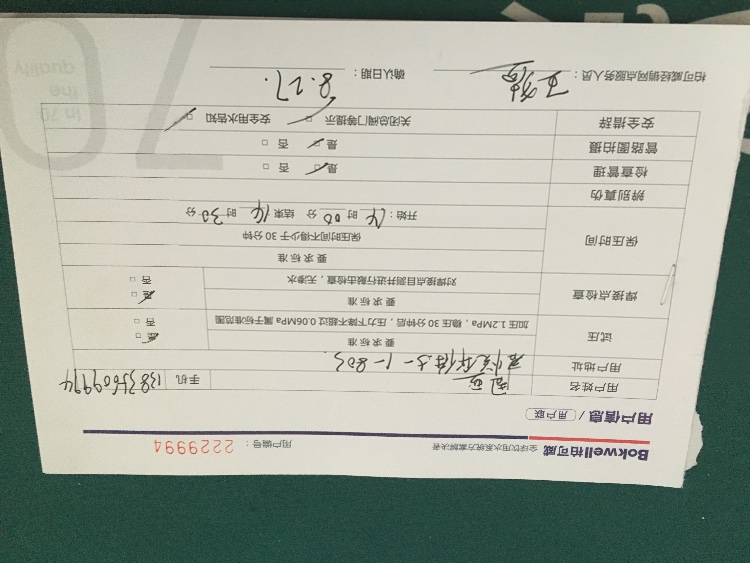 Bokwell柏可威 全球饮用水系统方案解决者 用户编号： 2229994
用户信息 / 用户联
用户姓名 手机 13835609994
用户地址 3-1-803
试压 要求标准 是
加压1.2MPa，稳压30分钟后，压力下降不超过0.06MPa属于标准范围 否
焊接点检查 要求标准 是
对焊接点目测并进行敲击检查，无渗水 否
保压时间 要求标准
保压时间不间不得少于30分钟
开始：14时00分 结束14时30分
辨别真伪
检查管理 是 否
管路图拍摄 是 否
安全措辞 关闭总阀门等提示 安全用水告知
柏可威经销网点服务人员： 确认日期： 8.27.
In 70
the
quality
70